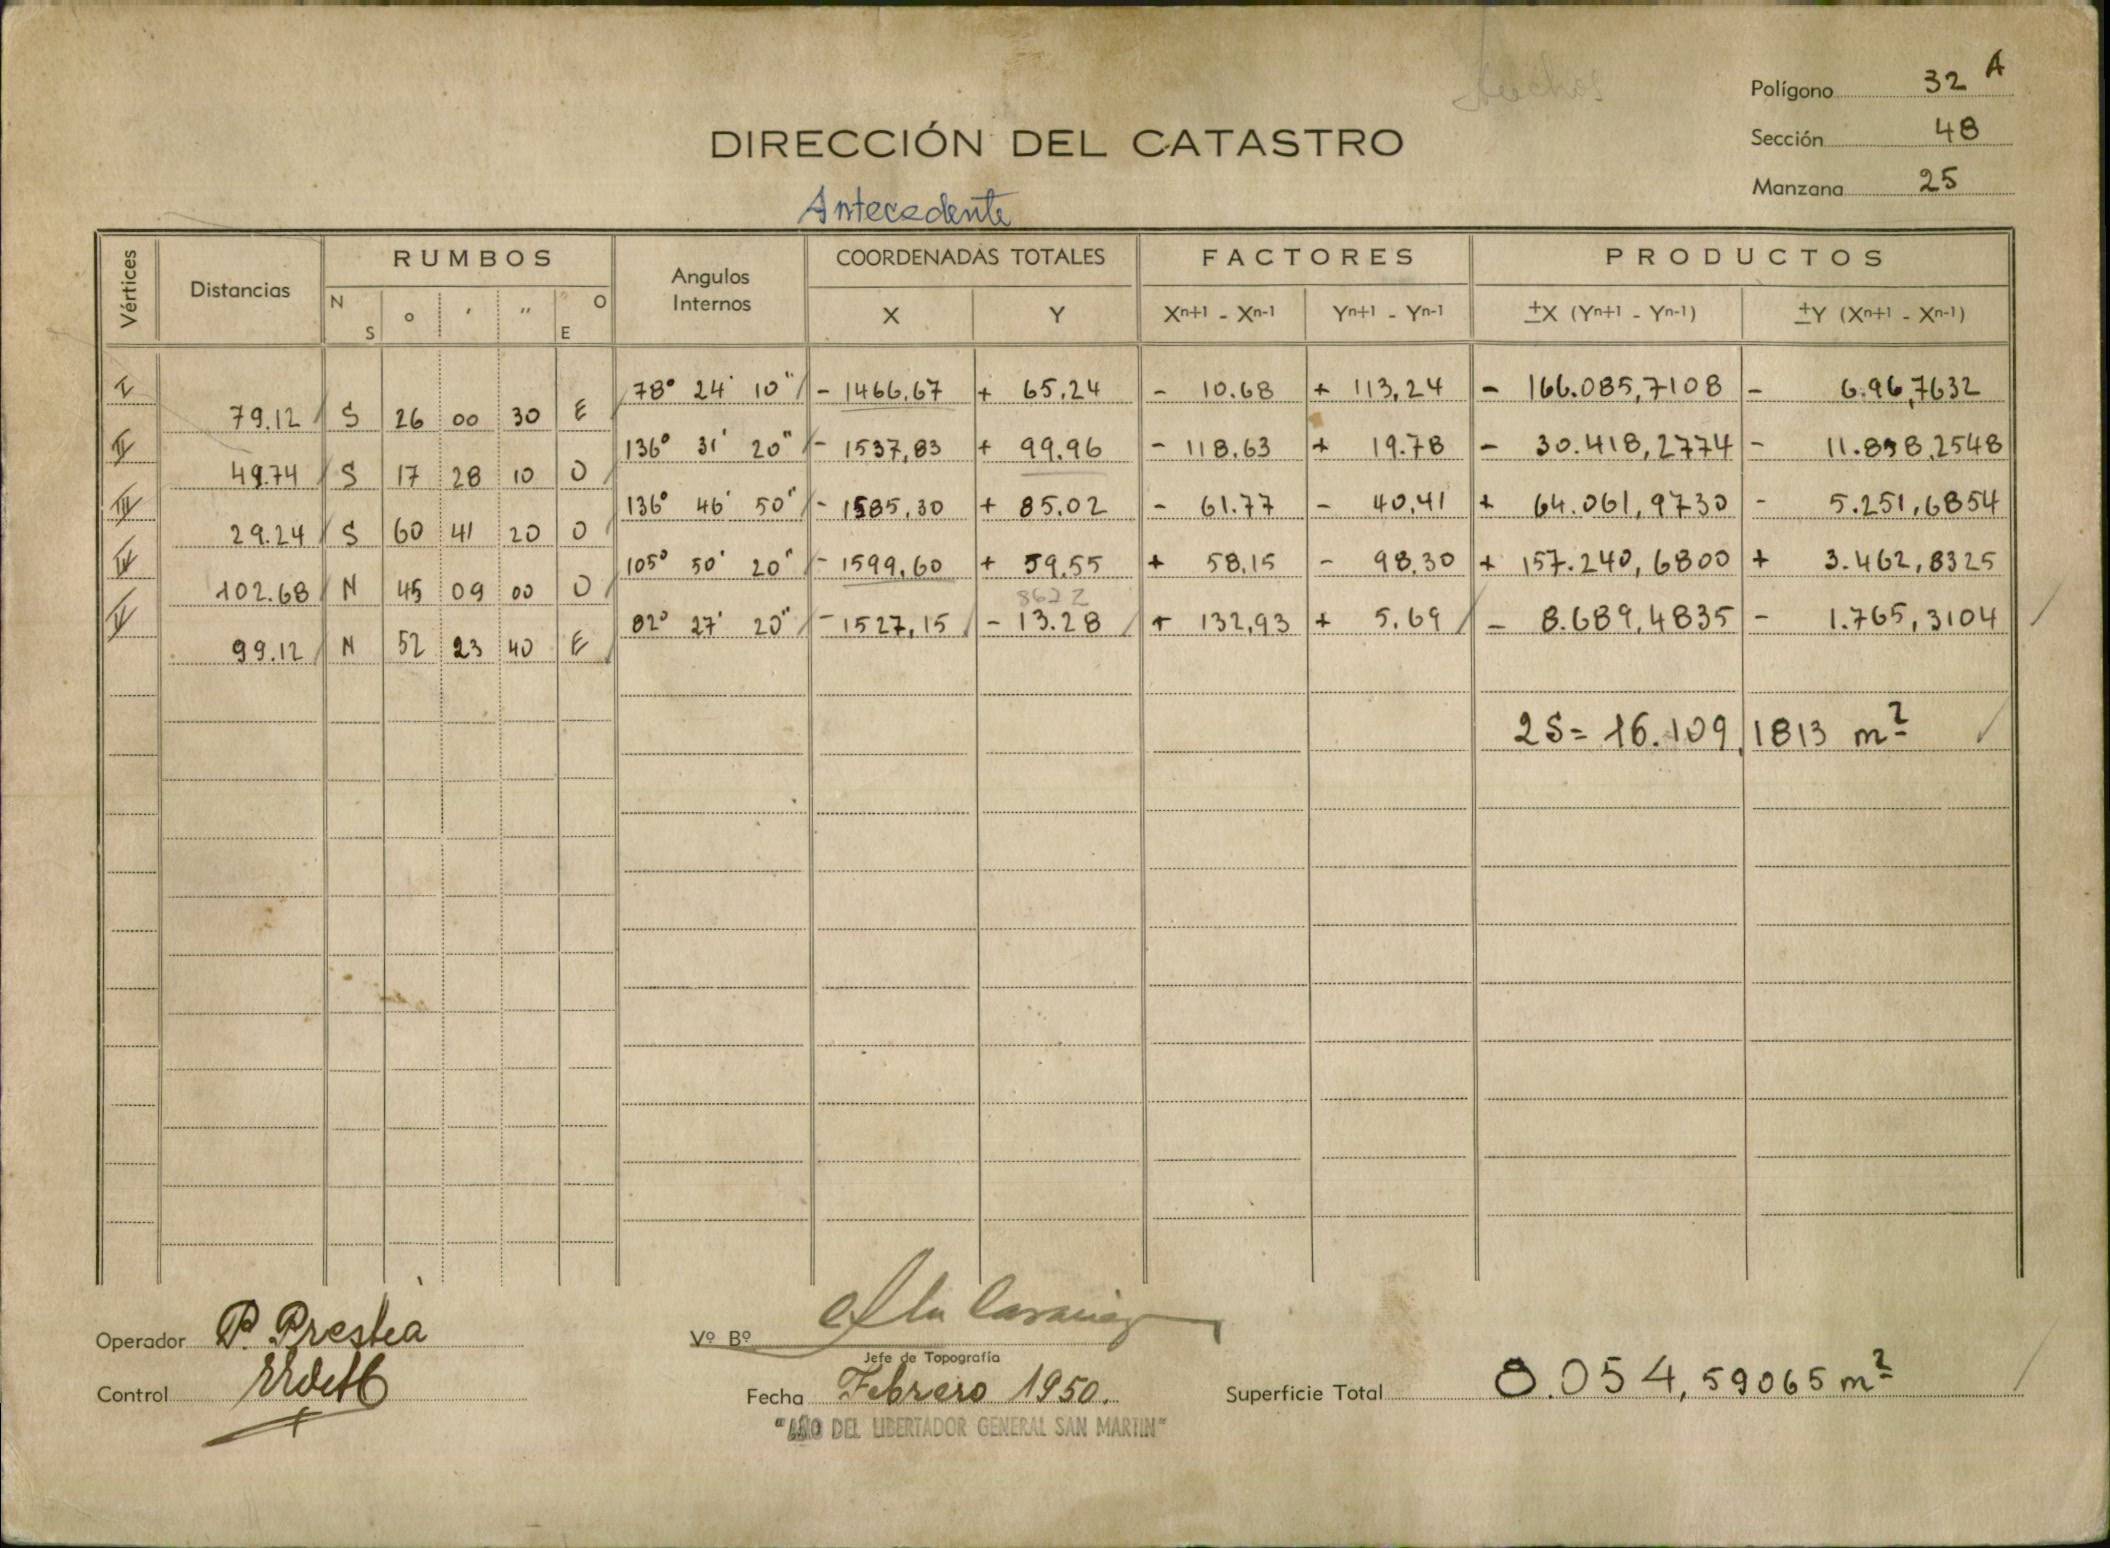 Polígono 32 A
DIRECCIÓN DEL CATASTRO
Sección 48
Manzana 25
Antecedente
Vértices Distancias RUMBOS Angulos Internos COORDENADAS TOTALES FACTORES PRODUCTOS
N S o ' " O E X Y Xn+1 - Xn-1 Yn+1 - Yn-1 ±X (Yn+1 - Yn-1) ±Y (Xn+1 - Xn-1)
I 78° 24' 10" - 1466,67 + 65.24 - 10.68 + 113,24 - 166.085,7108 - 6.96,7632
79.12 S 26 00 30 E
II 136° 31' 20" - 1537,83 + 99.96 - 118.63 + 19.78 - 30.418,2774 - 11.858,2548
49.74 S 17 28 10 O
III 136° 46' 50" - 1585,30 + 85.02 - 61.77 - 40,41 + 64.061,9730 - 5.251,6854
29.24 S 60 41 20 O
IV 105° 50' 20" - 1599,60 + 59.55 + 58,15 - 98,30 + 157.240,6800 + 3.462,8325
102.68 N 45 09 00 O
8622
V 82° 27' 20" - 1527,15 - 13.28 + 132,93 + 5.69 - 8.689,4835 - 1.765,3104
99.12 N 52 23 40 E
2S= 16.109,1813 m²
Operador P. Prestea
Vº Bº
Jefe de Topografía
Control
Fecha Febrero 1950.
Superficie Total 8.054,59065 m²
"AÑO DEL LIBERTADOR GENERAL SAN MARTIN"